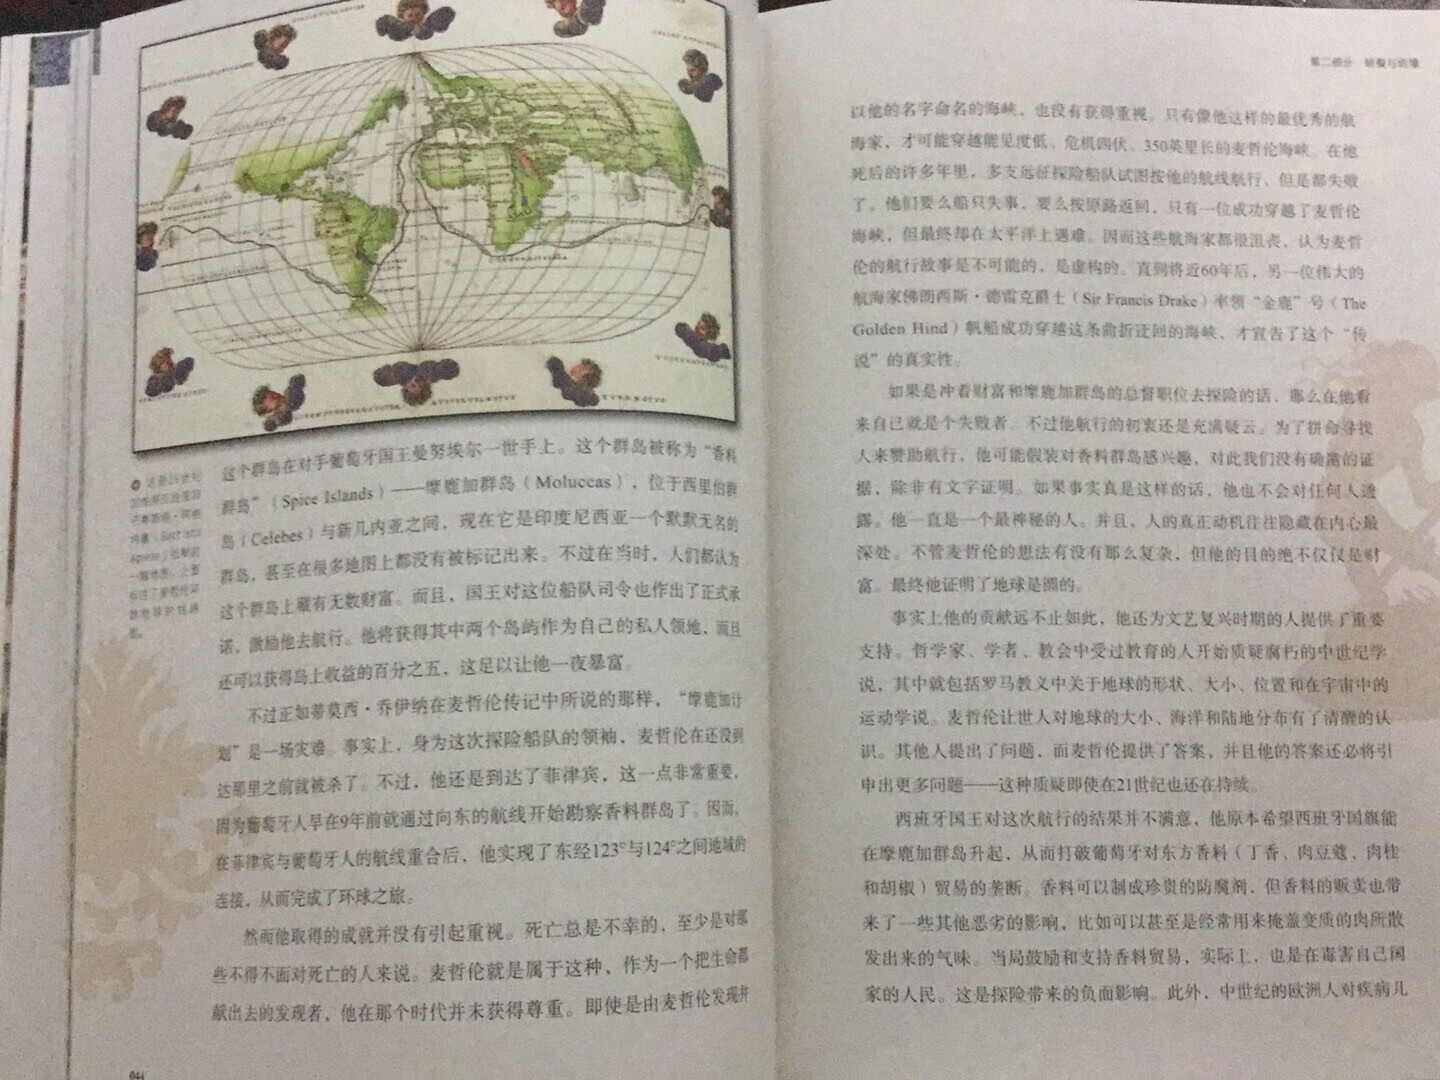 这个群岛在对手葡萄牙国王曼努埃尔一世手上。这个群岛被称为“香料
群岛”（Spice Islands）——摩鹿加群岛（Moluccas），位于西里伯群
岛（Celebes）与新几内亚之间，现在它是印度尼西亚一个默默无名的
群岛，甚至在很多地图上都没有被标记出来。不过在当时，人们都认为
这个群岛上藏有无数财富。而且，国王对这位船队司令也作出了正式承
诺，激励他去航行。他将获得其中两个岛屿作为自己的私人领地，而且
还可以获得岛上收益的百分之五，这足以让他一夜暴富。
不过正如蒂莫西·乔伊纳在麦哲伦传记中所说的那样，“摩鹿加计
划”是一场灾难。事实上，身为这次探险船队的领袖，麦哲伦在还没到
达那里之前就被杀了。不过，他还是到达了菲律宾，这一点非常重要，
因为葡萄牙人早在9年前就通过向东的航线开始勘察香料群岛了。因而，
在菲律宾与葡萄牙人的航线重合后，他实现了东经123°与124°之间地域的
连接，从而完成了环球之旅。
然而他取得的成就并没有引起重视。死亡总是不幸的，至少是对那
些不得不面对死亡的人来说。麦哲伦就是属于这种，作为一个把生命都
献出去的发现者，他在那个时代并未获得尊重。即使是由麦哲伦发现并
第二部分
以他的名字命名的海峡，也没有获得重视。只有像他这样的最优秀的航
海家，才可能穿越能见度低、危机四伏、350英里长的麦哲伦海峡。在他
死后的许多年里，多支远征探险船队试图按他的航线航行，但是都失败
了。他们要么船只失事，要么按原路返回，只有一位成功穿越了麦哲伦
海峡，但最终却在太平洋上遇难。因而这些航海家都很沮丧，认为麦哲
伦的航行故事是不可能的，是虚构的。直到将近60年后，另一位伟大的
航海家佛朗西斯·德雷克爵士（Sir Francis Drake）率领“金鹿”号（The
Golden Hind）帆船成功穿越这条曲折迂回的海峡，才宣告了这个“传
说”的真实性。
如果是冲着财富和摩鹿加群岛的总督职位去探险的话，那么在他看
来自己就是个失败者。不过他航行的初衷还是充满疑云。为了拼命寻找
人来赞助航行，他可能假装对香料群岛感兴趣，对此我们没有确凿的证
据，除非有文字证明。如果事实真是这样的话，他也不会对任何人透
露。他一直是一个最神秘的人。并且，人的真正动机往往隐藏在内心最
深处。不管麦哲伦的想法有没有那么复杂，但他的目的绝不仅仅是财
富。最终他证明了地球是圆的。
事实上他的贡献远不止如此，他还为文艺复兴时期的人提供了重要
支持。哲学家、学者、教会中受过教育的人开始质疑腐朽的中世纪学
说，其中就包括罗马教义中关于地球的形状、大小、位置和在宇宙中的
运动学说。麦哲伦让世人对地球的大小、海洋和陆地分布有了清醒的认
识。其他人提出了问题，而麦哲伦提供了答案，并且他的答案还必将引
申出更多问题——这种质疑即使在21世纪也还在持续。
西班牙国王对这次航行的结果并不满意，他原本希望西班牙国旗能
在摩鹿加群岛升起，从而打破葡萄牙对东方香料（丁香、肉豆蔻、肉桂
和胡椒）贸易的垄断。香料可以制成珍贵的防腐剂，但香料的贩卖也带
来了一些其他恶劣的影响，比如可以甚至是经常用来掩盖变质的肉所散
发出来的气味。当局鼓励和支持香料贸易，实际上，也是在毒害自己国
家的人民。这是探险带来的负面影响。此外，中世纪的欧洲人对疾病几